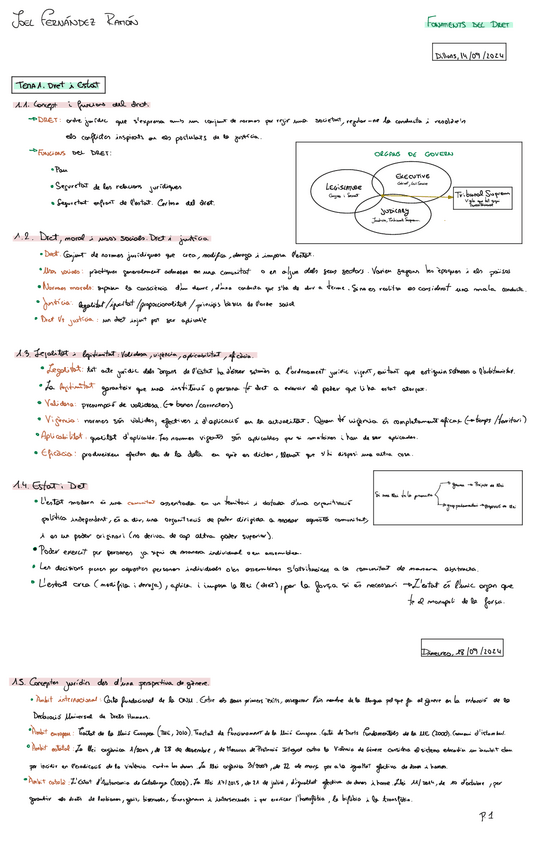 JOEL FERNÁNDEZ RAMÓN
FONAMENTS DEL DRET
Dilluns, 14/09/2024
TEMA 1. Dret i Estat
1.1. Concept i funcions del dret.
→ DRET: ordre jurídic que s'expressa amb un conjunt de normes per regir una societat, regular-ne la conducta i resoldre'n
els conflictes inspirats en els postulats de la justícia.
→ FUNCIONS DEL DRET:
• Pau
• Seguretat de les relacions jurídiques
• Seguretat enfront de l'estat. Control del dret.
ÒRGANS DE GOVERN
EXECUTIVE
LEGISLATIVE
JUDICIARY
Tribunal Suprem
1.2. Dret, moral i usos socials. Dret i justícia
• Dret: Conjunt de normes jurídiques que crea, modifica, deroga i imposa l'estat.
• Usos socials: pràctiques generalment admeses en una comunitat o en algun dels seus sectors. Varien segons les èpoques i els països
• Normes morals: segons la consciència d'un deure, d'una conducta que s'ha de dur a terme. Si no es realitza es considera una mala conducta.
• Justícia: legalitat/igualtat/proporcionalitat/principis bàsics de l'ordre social
• Dret Vs justícia: un dret injust pot ser aplicable
1.3. Legalitat i legitimitat: Validesa, vigència, aplicabilitat, eficàcia.
• Legalitat: tot acte jurídic dels òrgans de l'Estat ha d'estar sotmès a l'ordenament jurídic vigent, evitant que estiguin sotmesos a l'arbitrarietat.
• La legitimitat: garanteix que una institució o persona té dret a exercir el poder que li ha estat atorgat.
• Validesa: presumpció de validesa. (→ bones/correctes)
• Vigència: normes són vàlides, efectives i d'aplicació en la actualitat. Quan té vigència és completament eficaç (→ temps/territori)
• Aplicabilitat: qualitat d'aplicable. Les normes vigents són aplicables per si mateixes i han de ser aplicades.
• Eficàcia: produeixen efectes des de la data en què es dicten, llevat que s'hi disposi una altra cosa.
1.4. Estat i Dret
• L'estat modern és una comunitat assentada en un territori i dotada d'una organització
política independent, és a dir, una organització de poder dirigida a ordenar aquesta comunitat,
i és un poder originari (no deriva de cap altre poder superior).
• Poder exercit per persones ja sigui de manera individual o en assemblea.
• Les decisions preses per aquestes persones individuals o les assemblees s'atribueixen a la comunitat de manera abstracta.
• L'estat crea (modifica i deroga), aplica i imposa la llei (dret), per la força si és necessari → L'estat és l'únic organ que
té el monopoli de la força.
Dimecres, 18/09/2024
1.5. Conceptes jurídics des d'una perspectiva de gènere.
• Àmbit internacional: Carta fundacional de la ONU. Entre els seus primers èxits, assegurar l'ús neutre de la llengua pel que fa al gènere en la redacció de la
Declaració Universal de Drets Humans.
• Àmbit europeu: Tractat de la Unió Europea (TUE, 2010). Tractat de Funcionament de la Unió Europea. Carta de Drets Fonamentals de la UE (2000). Conveni d'Istanbul.
• Àmbit estatal: La llei orgànica 1/2004, de 28 de desembre, de Mesures de Protecció Integral contra la Violència de Gènere considera el sistema educatiu un àmbit clau
per incidir en l'eradicació de la violència contra les dones. La llei orgànica 3/2007, de 22 de març, per a la igualtat efectiva de dones i homes.
• Àmbit català: L'Estatut d'Autonomia de Catalunya (2006). La llei 17/2015, de 21 de juliol, d'igualtat efectiva de dones i homes. Llei 11/2014, de 10 d'octubre, per
garantir els drets de lesbianes, gais, bisexuals, transgèneres i intersexuals i per eradicar l'homofòbia, la bifòbia i la transfòbia.
P.1